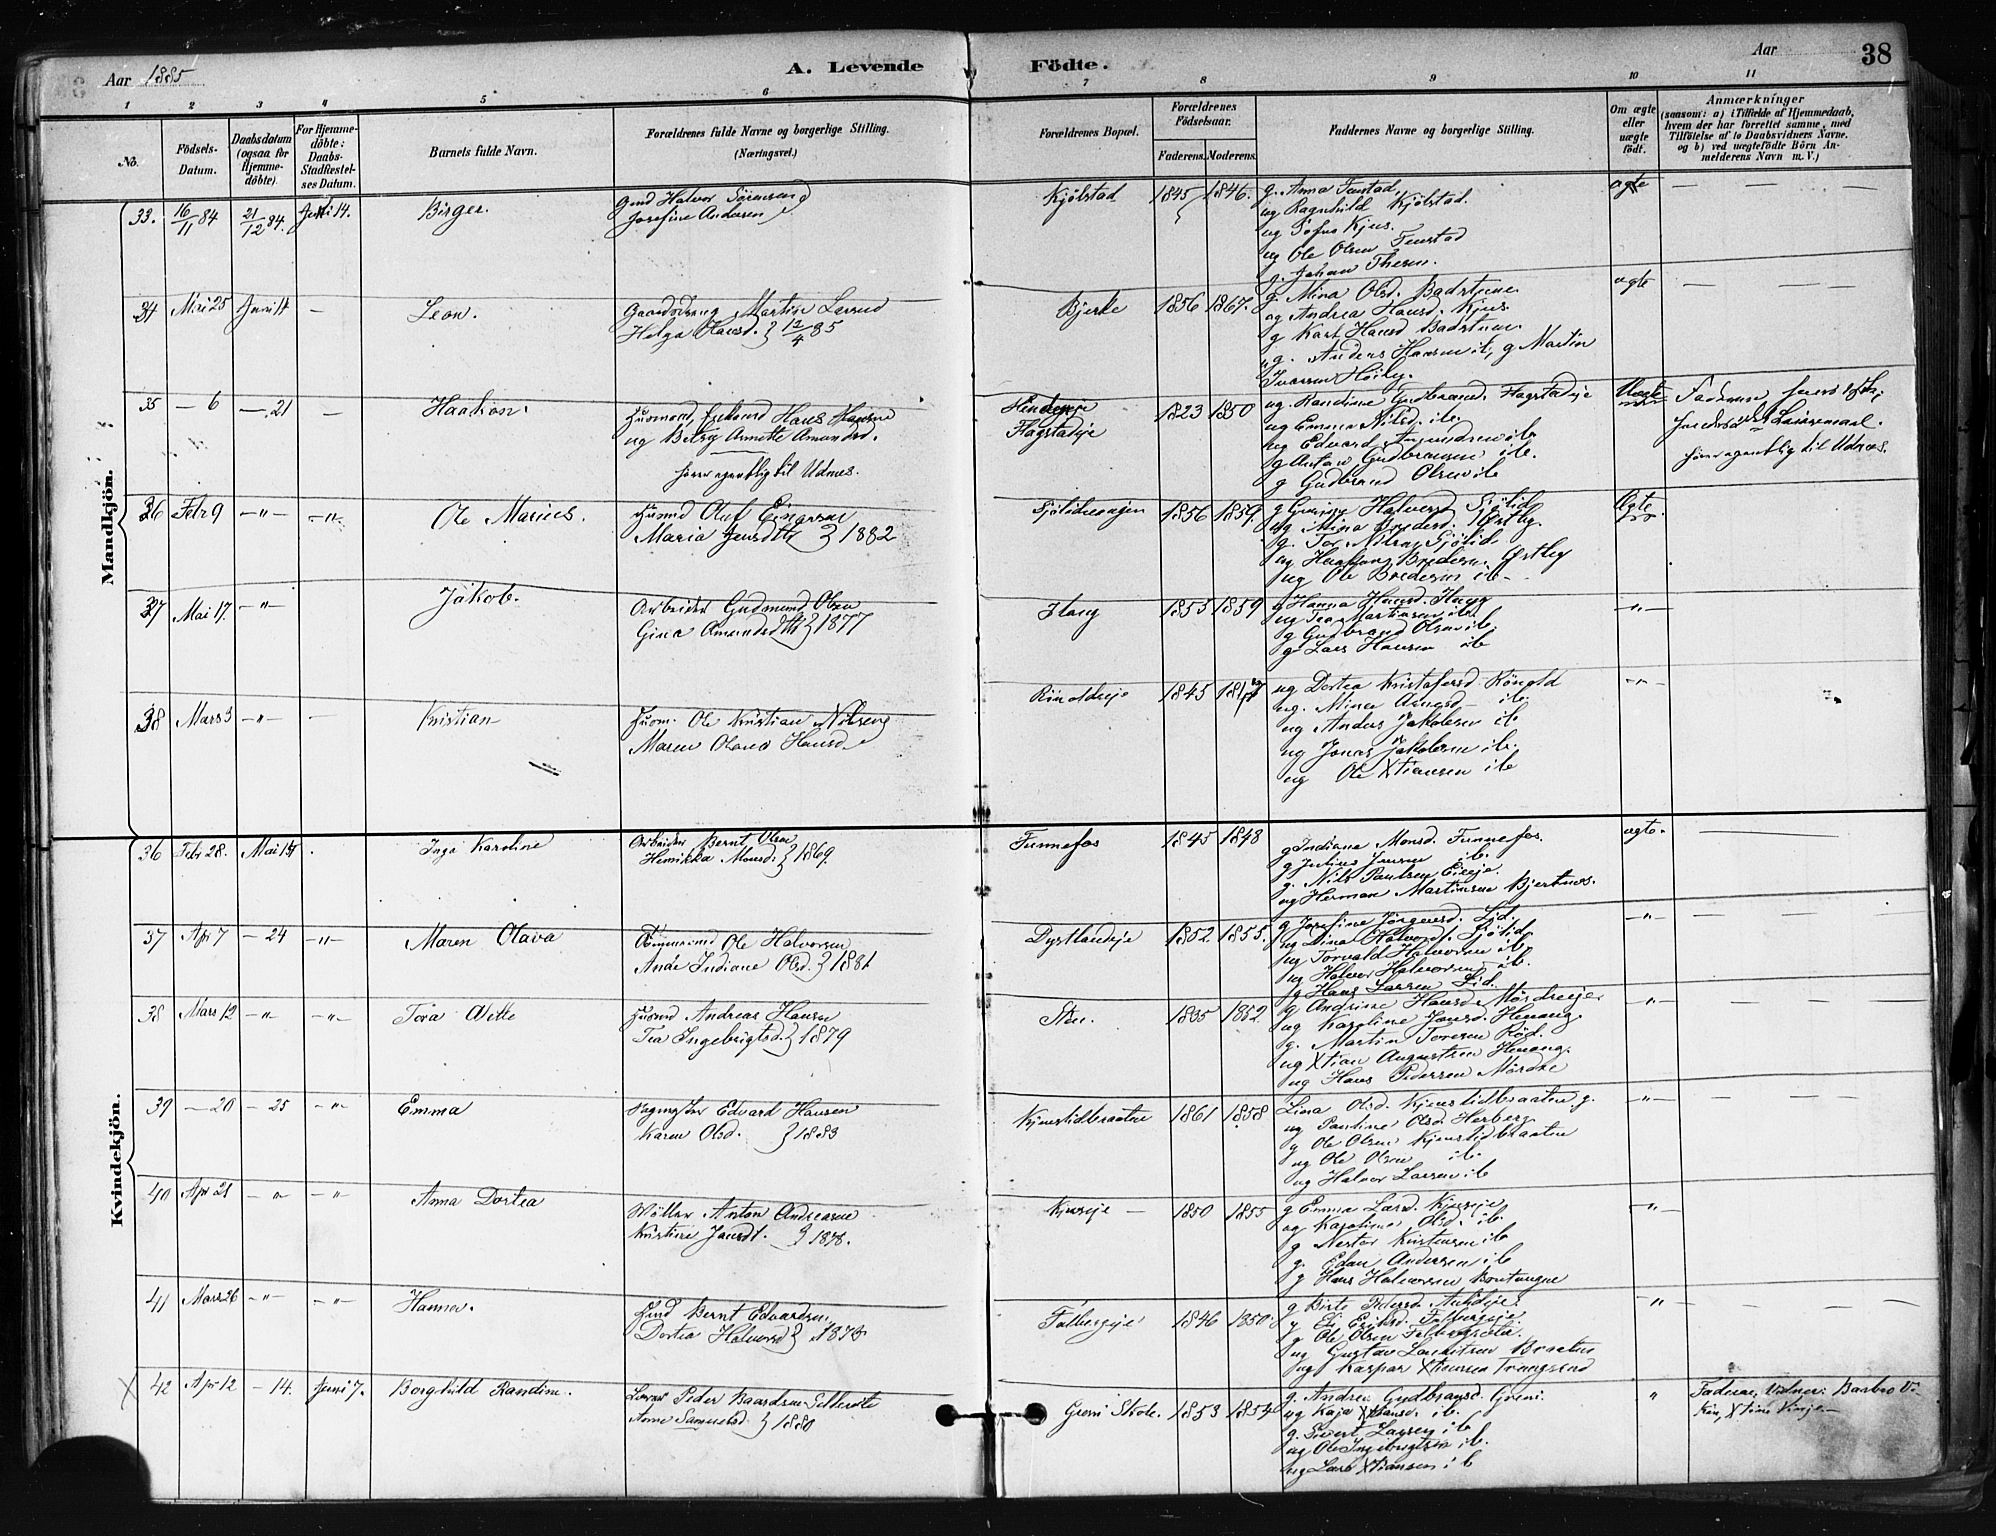 Aar 1885
A. Levende Födte.
Aar
38
1 2 3 4 5 6 7 8 9 10 11
No.
Födsels-Datum.
Daabsdatum (ogsaa for Hjemmedöbte).
For Hjemmedöbte: Daabs-Stadfestelses Datum.
Barnets fulde Navn.
Forældrenes fulde Navne og borgerlige Stilling. (Næringsvei.)
Forældrenes Bopæl.
Forældrenes Födselsaar.
Faderens. Moderens.
Faddernes Navne og borgerlige Stilling.
Om ægte eller uægte födt.
Anmærkninger (saasom: a) i Tilfælde af Hjemmedaab, hvem der har forrettet samme, med Tilföielse af to Daabsvidners Navne. og b) ved uægtefödte Börn Anmelderens Navn m. V.)
Mandkjön.
33. 16/11 84 21/12 84. Juni 14. Birger.
Gmd Halvor Sörensen
Josefine Andersen
Kjölstad 1845 1846.
g. Anna Fenstad,
ug Ragnhild Kjölstad.
ug Sofus Kjus.
ug Ole Olsen Fenstad
g. Johan Thesen.
ægte
34 25 Juni 14 – Leon.
Martin Larsen
Helga Hansd. } 12/4 85
Bjerke 1856 1867.
g. Mina Olsd. Badstuene
ug Andrea Hansd. Kjus.
g Karl Hansd Badstuen.
g. Anders Hansen ib, g Martin
Ivarsen Höiby.
ægte
35 – 6 – 21 – Haakon.
Husmd, Enkemd Hans Hansen
ug Betsy Annette Amundsd.
hörer egentlig til Udnes.
Flagstadeje 1823 1850
ug. Randine Gudbrandsd. Flagstadeje
ug Emma Nilsd. ib.
ug Edvard Amundsen ib
g Anton Gudbransen ib.
g Gudbrand Olsen ib
Uægte
hörer egentlig til Udnes.
36 Febr 9 –"– –"– Ole Marius.
Husmd Oluf Einarsen
Maria Jensdtr } 1882
1856 1859.
g Halvorsd Sjölid
ug. Mina Bredesd. Østby.
g. Tor Nilsen Sjölid
ug Bredesen Østby
ug Ole Bredesen ib –
Ægte
37 Mai 17. –"– Jakob.
Arbeider Gudmund Olsen
Gina Amundsdtr } 1877
Haug 1855 1859
g Hanna Hansd. Haug
ug Tea Martinsen ib.
g Gudbrand Olsen ib.
g. Lars Hansen ib
–"–
38 Mars 3 –"– – Kristian
Husm. Ole Kristian Nilsen
Maren Olava Hansd.
1845
ug Dortea Kristofersd.
ug. Mina – ib.
ug Anders Jakobsen ib
ug Jonas Jakobsen ib.
ug Ole Xtiansen ib
–"–
Kvindekjön.
36 Febr 28. Mai 14 . Inga Karoline
Arbeider Bernt Olsen
Henrikka Monsd. } 1869.
Funnefos 1845 1848
g Indiana Monsd. Funnefos.
g Julius Jensen ib.
g. Nils Paulsen
ug Herman Martinsen Bjertnes.
ægte.
37 Apr 7 – 24 –"– Maren Olava
Ole Halvorsen
Ane Indiane Olsd. } 1881
Dystlandeje 1852 1855.
g Josefine Jörgensd. Lid.
ug Dina Halvorsd. Sjölid
ug Torvald Halvorsen ib.
ug Halvor Halvorsen ib.
g Hans Larsen Lid.
–"–
38 Mars 12 –"– –"– Tora Olette
Husmd Andreas Hansen
Tea Ingebrigtsd. } 1879
Sten. 1835 1852.
g Andrine Hansd. Mördreeje
ug Karoline Jansd. Henang.
g. Martin Toresen Röd.
ug Xtian Augustsen Henang.
ug Hans Pedersen Mördre
"–
39 – 20 – 25 –"– Emma
Edvard Hansen
Karen Olsd. } 1883
Kjenstidbraaten 1861 1858
Lina Olsd. Kjenstidbraaten g.
ug Pauline Olsd. Herberg
g Ole Olsen Kjenstidbraaten
ug Ole Olsen ib.
ug Halvor Larsen ib
–"–
40 Apr 21 –"– –"– Anna Dortea
Möller Anton Andreasen
Kristine Jansdt. } 1878.
Kjuseje – 1850 1855
g Emma Larsd. Kjuseje
ug Karoline Olsd. ib.
g Nestor Kristensen ib
g. Edan Andersen ib
g Hans Halvorsen
–"–
41 Mars 26 –"– –"– Hanna.
Bernt Edvardsen
Dortea Halvorsd } 1873
1846 1850.
g Birte Pedersd.
g Eriksd.
g Ole Olsen
ug Gustav Lauritsen Braaten
ug Kaspar Xtiansen
"
42 Apr 12 – 14. Juni 7. Borghild Randine.
Lærer Peder Baardsen
Anne Samuelsd. } 1880
Greni Skole. 1853 1854
g. Andrea Gudbransd. Greni.
ug Kaja Xtiansd. ib.
g. Sivert Larsen ib
ug Ole Ingebrigtsen ib.
ug Lars Xtiansen ib
"
Faderen, Vidner: Barbro